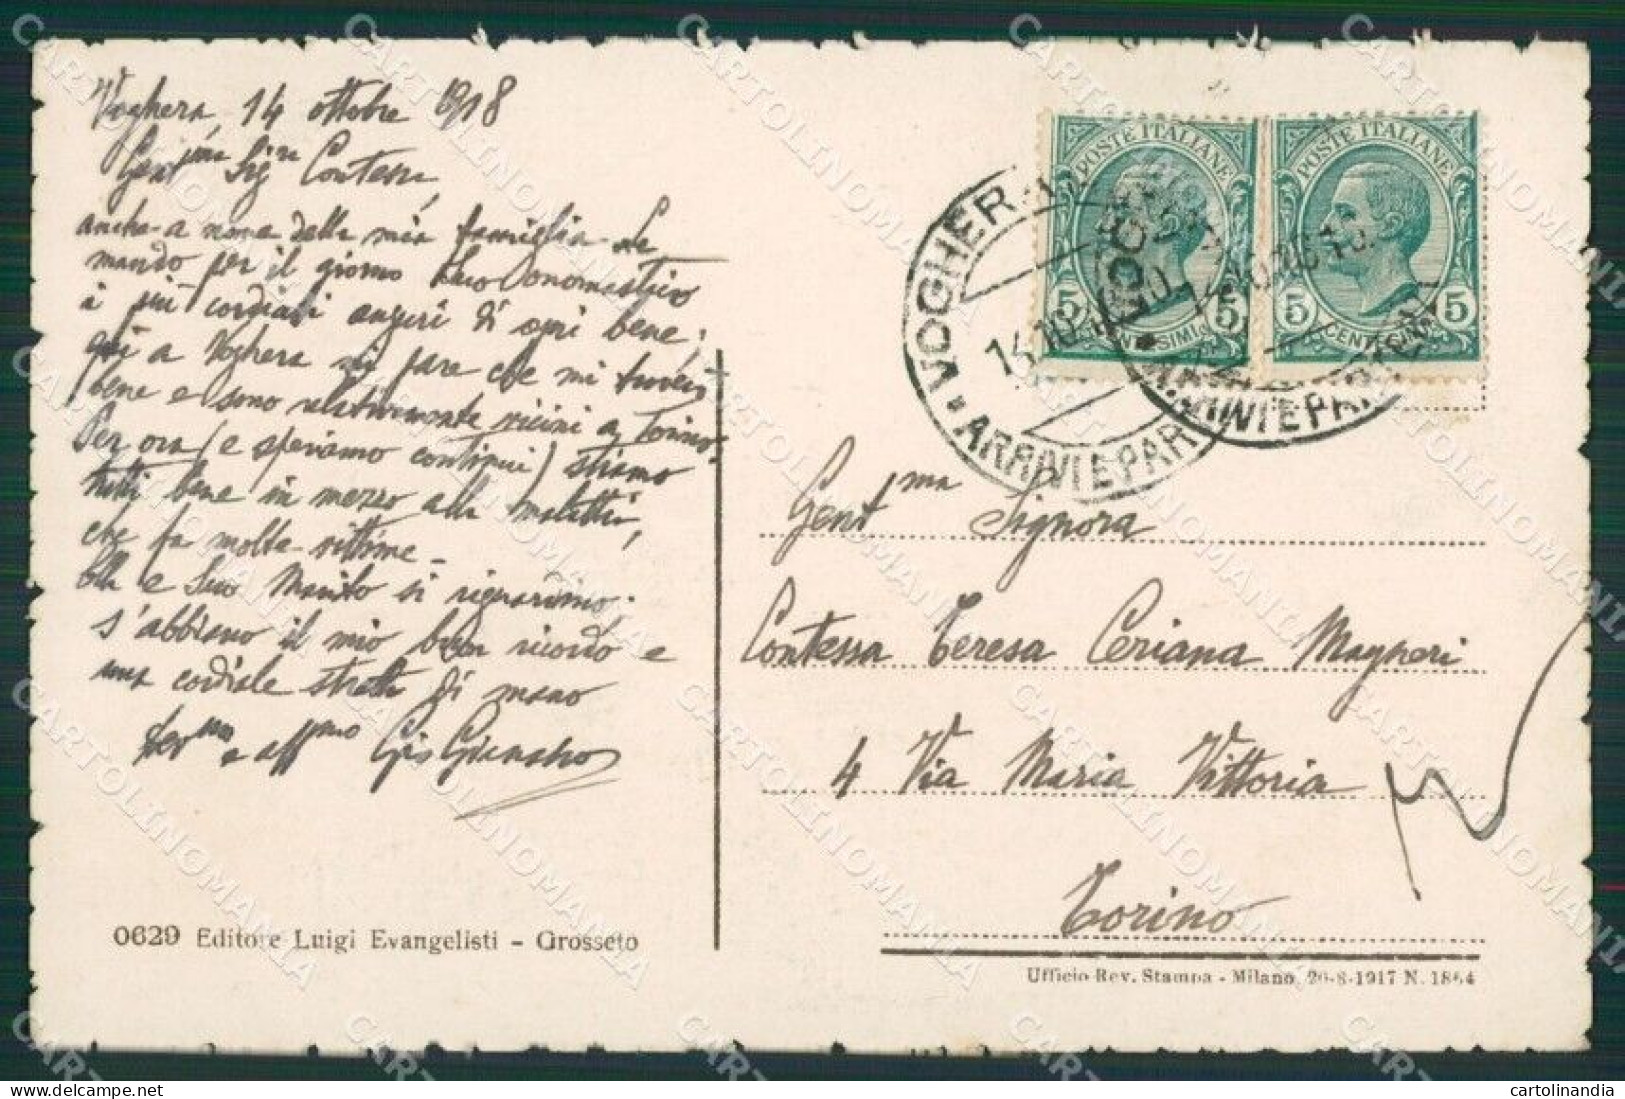 Voghera 14 ottobre 1918
Gent.ma Sig.ra Contessa,
anche a nome della mia famiglia Le
mando per il giorno Suo onomastico
i più cordiali auguri di ogni bene;
qui a Voghera mi pare che mi troverò
bene e sono relativamente vicini a Torino.
Per ora (e speriamo continui) stiamo
tutti bene in mezzo alla malattia,
che fa molte vittime.
Ella e Suo Marito si riguardino;
s'abbiano il mio buon ricordo e
una cordiale stretta di mano
dev.mo e aff.mo
0629 Editore Luigi Evangelisti - Grosseto
POSTE ITALIANE
5 CENTESIMI 5
POSTE ITALIANE
5 CENTESIMI 5
VOGHERA
ARRIVI E PAR
ARRIVI E PAR
Gent.ma Signora
Contessa Teresa Ceriana Mayneri
4 Via Maria Vittoria
Torino
Ufficio Rev. Stampa - Milano 20-8-1917 N. 1864
CARTOLINOMANIA
cartolinandia